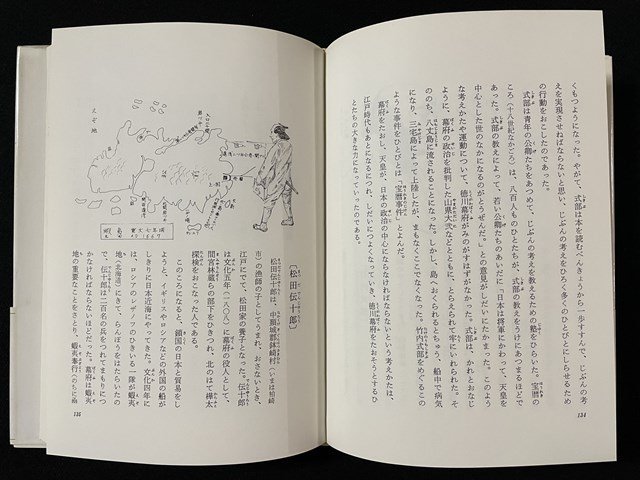 くもつようになった。やがて、式部は本を読むべんきょうから一歩すすんで、じぶんの考
えを実現させねばならないと思い、じぶんの考えをひろく多くのひとびとにしらせるため
の行動をおこしたのであった。
式部は青年の公卿たちをあつめて、じぶんの考えを教えるための塾をひらいた。宝暦の
ころ(十八世紀なかごろ)は、八百人ものひとたちが、式部の教えをうけにあつまるほどで
あった。式部の教えによって、若い公卿たちのあいだに「日本は将軍にかわって、天皇を
中心とした世のなかになるのがとうぜんだ。」との意見がしだいにたかまった。このよう
な考えかたや運動について、徳川幕府がみのがすはずがなかった。式部は、かれとおなじ
ように、幕府の政治を批判した山県大弐などとともに、とらえられて牢にいれられた。そ
ののち、八丈島に流されることになった。しかし、島へおくられるとちゅう、船中で病気
になり、三宅島によって上陸したが、まもなくここでなくなった。竹内式部をめぐるこの
ような事件をひとびとは「宝暦事件」とよんだ。
幕府をたおし、天皇が、日本の政治の中心にならなければならないという考えかたは、
江戸時代もあとになるにつれ、しだいにつよくなっていき、徳川幕府をたおそうとするひ
とたちの大きな力になっていったのである。
134
えぞ地
〔松田伝十郎〕
松田伝十郎は、中頸城郡鉢崎村(いまは柏崎
市)の漁師の子としてうまれ、おさないとき、
江戸にでて、松田家の養子となった。伝十郎
は文化五年(一八〇八)に幕府の役人として、
間宮林蔵らの部下をひきつれ、北のはて樺太
探検をおこなった人である。
このころになると、鎖国の日本と貿易をし
ようと、イギリスやロシアなどの外国の船が
しきりに日本近海にやってきた。文化四年に
は、ロシアのレザノフのひきいる一隊が蝦夷
地(北海道)にきて、らんぼうをはたらいたの
で、伝十郎は二百名の兵をつれてまもりにつ
かなければならないほどだった。幕府は蝦夷
地の重要なことをさとり、蝦夷奉行(のちに函
135